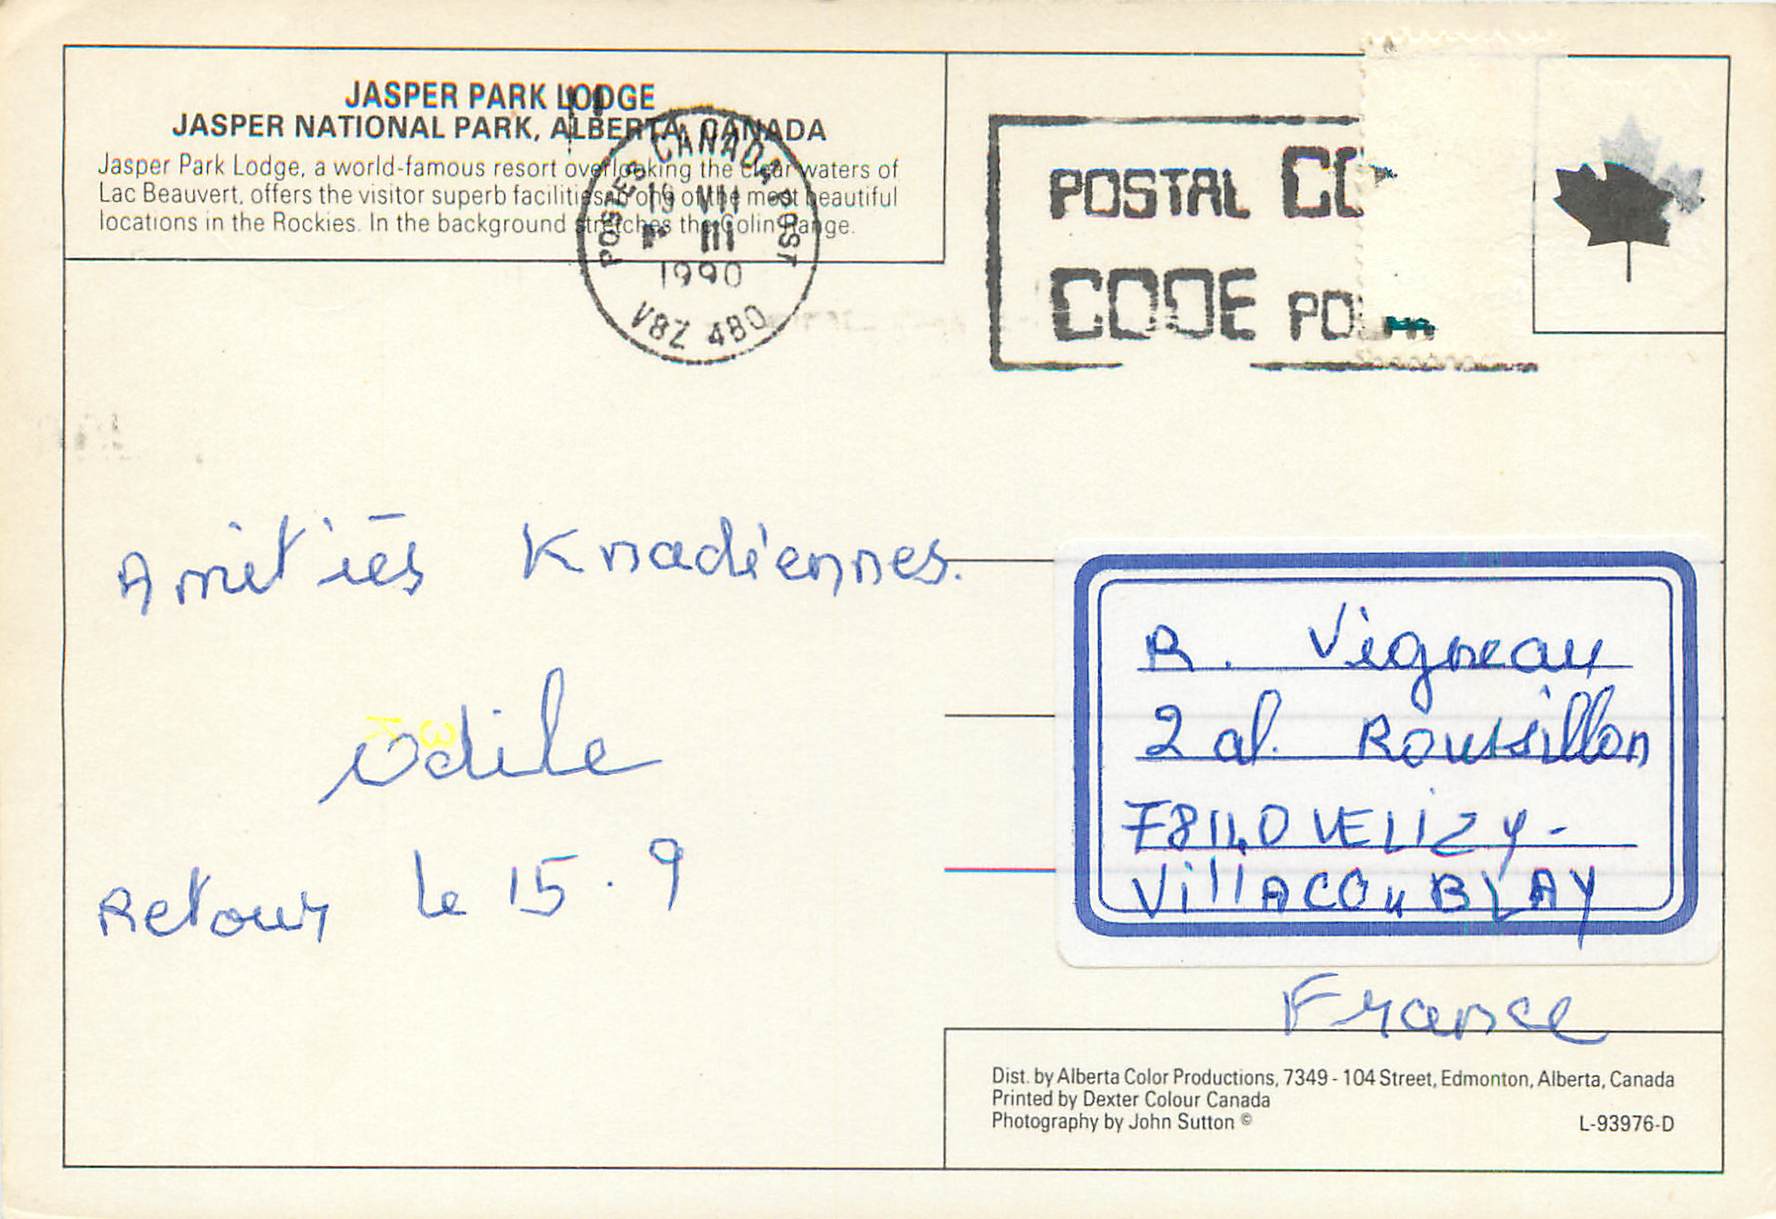 JASPER PARK LODGE
JASPER NATIONAL PARK, ALBERTA, CANADA
Jasper Park Lodge, a world-famous resort overlooking the clear waters of
Lac Beauvert, offers the visitor superb facilities in one of the most beautiful
locations in the Rockies. In the background stretches the Colin Range.
POSTES CANADA POST
19 VII
1990
V8Z 4B0
POSTAL CO
CODE PO
Amitiés Knadiennes.
Odile
Retour le 15.9
R. Vigneau
2 al. Roussillon
78140 VELIZY-
VillACOuBLAY
France
Dist. by Alberta Color Productions, 7349 - 104 Street, Edmonton, Alberta, Canada
Printed by Dexter Colour Canada
Photography by John Sutton ©
L-93976-D